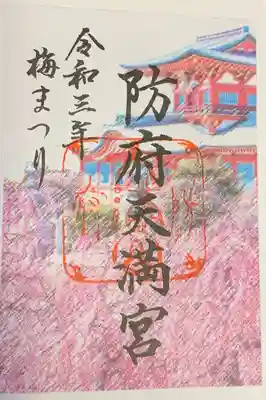 令和三年
梅まつり
防府天満宮